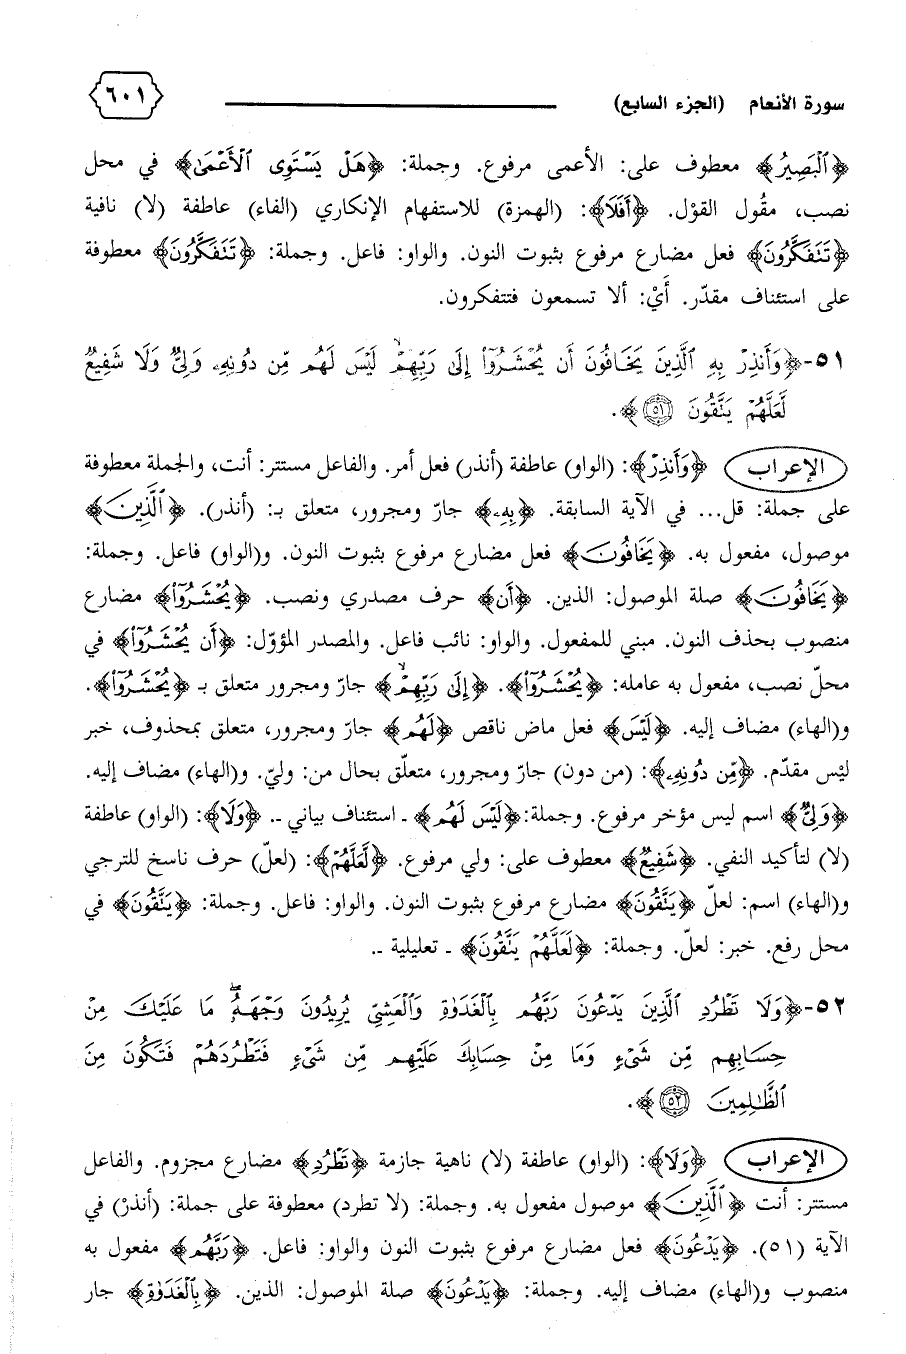 سورة الأنعام (الجزء السابع) ٦٠١
﴿ٱلْبَصِيرُ﴾ معطوف على: الأعمى مرفوع. وجملة: ﴿هَلْ يَسْتَوِى ٱلْأَعْمَىٰ﴾ في محل
نصب، مقُول القوْل. ﴿أَفَلَا﴾: (الهمزة) للاستفهام الإنكاري (الفاء) عاطفة (لا) نافية
﴿تَتَفَكَّرُونَ﴾ فعل مضارع مرفوع بثبوت النون. والواو: فاعل. وجملة: ﴿تَتَفَكَّرُونَ﴾ معطوفة
على استئناف مقدّر. أَيْ: ألا تسمعون فتتفكرون.
٥١-﴿وَأَنذِرْ بِهِ ٱلَّذِينَ يَخَافُونَ أَن يُحْشَرُوٓا۟ إِلَىٰ رَبِّهِمْ ۙ لَيْسَ لَهُم مِّن دُونِهِۦ وَلِىٌّ وَلَا شَفِيعٌ
لَّعَلَّهُمْ يَتَّقُونَ ٥١﴾.
الإعراب ﴿وَأَنذِرْ﴾: (الواو) عاطفة (أنذر) فعل أمر. والفاعل مستتر: أنت، والجملة معطوفة
على جملة: قل... في الآية السابقة. ﴿بِهِۦ﴾ جارّ ومجرور، متعلق بـ: (أنذر). ﴿ٱلَّذِينَ﴾
موصول، مفعول به. ﴿يَخَافُونَ﴾ فعل مضارع مرفوع بثبوت النون. و(الواو) فاعل. وجملة:
﴿يَخَافُونَ﴾ صلة الموصول: الذين. ﴿أَن﴾ حرف مصدري ونصب. ﴿يُحْشَرُوٓا۟﴾ مضارع
منصوب بحذف النون. مبني للمفعول. والواو: نائب فاعل. والمصدر المؤوّل: ﴿أَن يُحْشَرُوٓا۟﴾ في
محلّ نصب، مفعول به عامله: ﴿يُحْشَرُوٓا۟﴾. ﴿إِلَىٰ رَبِّهِمْ ۙ﴾ جارّ ومجرور متعلق بـ ﴿يُحْشَرُوٓا۟﴾.
و(الهاء) مضاف إليه. ﴿لَيْسَ﴾ فعل ماض ناقص ﴿لَهُم﴾ جارّ ومجرور، متعلق بمحذوف، خبر
ليْس مقدّم. ﴿مِّن دُونِهِۦ﴾: (من دون) جارّ ومجرور، متعلّق بحال من: وليّ. و(الهاء) مضاف إليه.
﴿وَلِىٌّ﴾ اسم ليس مؤخر مرفوع. وجملة:﴿لَيْسَ لَهُم﴾ ـ استئناف بياني ـ. ﴿وَلَا﴾: (الواو) عاطفة
(لا) لتأكيد النفي. ﴿شَفِيعٌ﴾ معطوف على: ولي مرفوع. ﴿لَّعَلَّهُمْ﴾: (لعلّ) حرف ناسخ للترجي
و(الهاء) اسم: لعلّ ﴿يَتَّقُونَ﴾ مضارع مرفوع بثبوت النون. والواو: فاعل. وجملة: ﴿يَتَّقُونَ﴾ في
محل رفع. خبر: لعلّ. وجملة: ﴿لَعَلَّهُمْ يَتَّقُونَ﴾ ـ تعليلية ـ.
٥٢-﴿وَلَا تَطْرُدِ ٱلَّذِينَ يَدْعُونَ رَبَّهُم بِٱلْغَدَوٰةِ وَٱلْعَشِىِّ يُرِيدُونَ وَجْهَهُۥ ۖ مَا عَلَيْكَ مِنْ
حِسَابِهِم مِّن شَىْءٍ وَمَا مِنْ حِسَابِكَ عَلَيْهِم مِّن شَىْءٍ فَتَطْرُدَهُمْ فَتَكُونَ مِنَ
ٱلظَّٰلِمِينَ ٥٢﴾.
الإعراب ﴿وَلَا﴾: (الواو) عاطفة (لا) ناهية جازمة ﴿تَطْرُدِ﴾ مضارع مجزوم. والفاعل
مستتر: أنت ﴿ٱلَّذِينَ﴾ موصول مفعول به. وجملة: (لا تطرد) معطوفة على جملة: (أنذرْ) في
الآية (٥١). ﴿يَدْعُونَ﴾ فعل مضارع مرفوع بثبوت النون والواو: فاعل. ﴿رَبَّهُم﴾ مفعول به
منصوب و(الهاء) مضاف إليه. وجملة: ﴿يَدْعُونَ﴾ صلة الموصول: الذين. ﴿بِٱلْغَدَوٰةِ﴾ جار